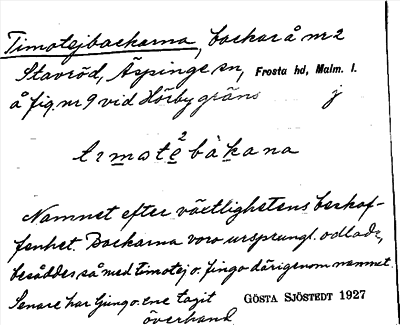 Timotejbackarna, backar å nr 2
Stavröd, Äspinge sn, Frosta hd, Malm. l.
å fig. nr 9 vid Hörby gräns j
timotè²bàkana
Namnet efter växtlighetens beskaf-
fenhet. Backarna voro ursprungl. odlade,
besåddes så med timotej o. fingo därigenom namnet.
Senare har ljung o. ene tagit
överhand GÖSTA SJÖSTEDT 1927